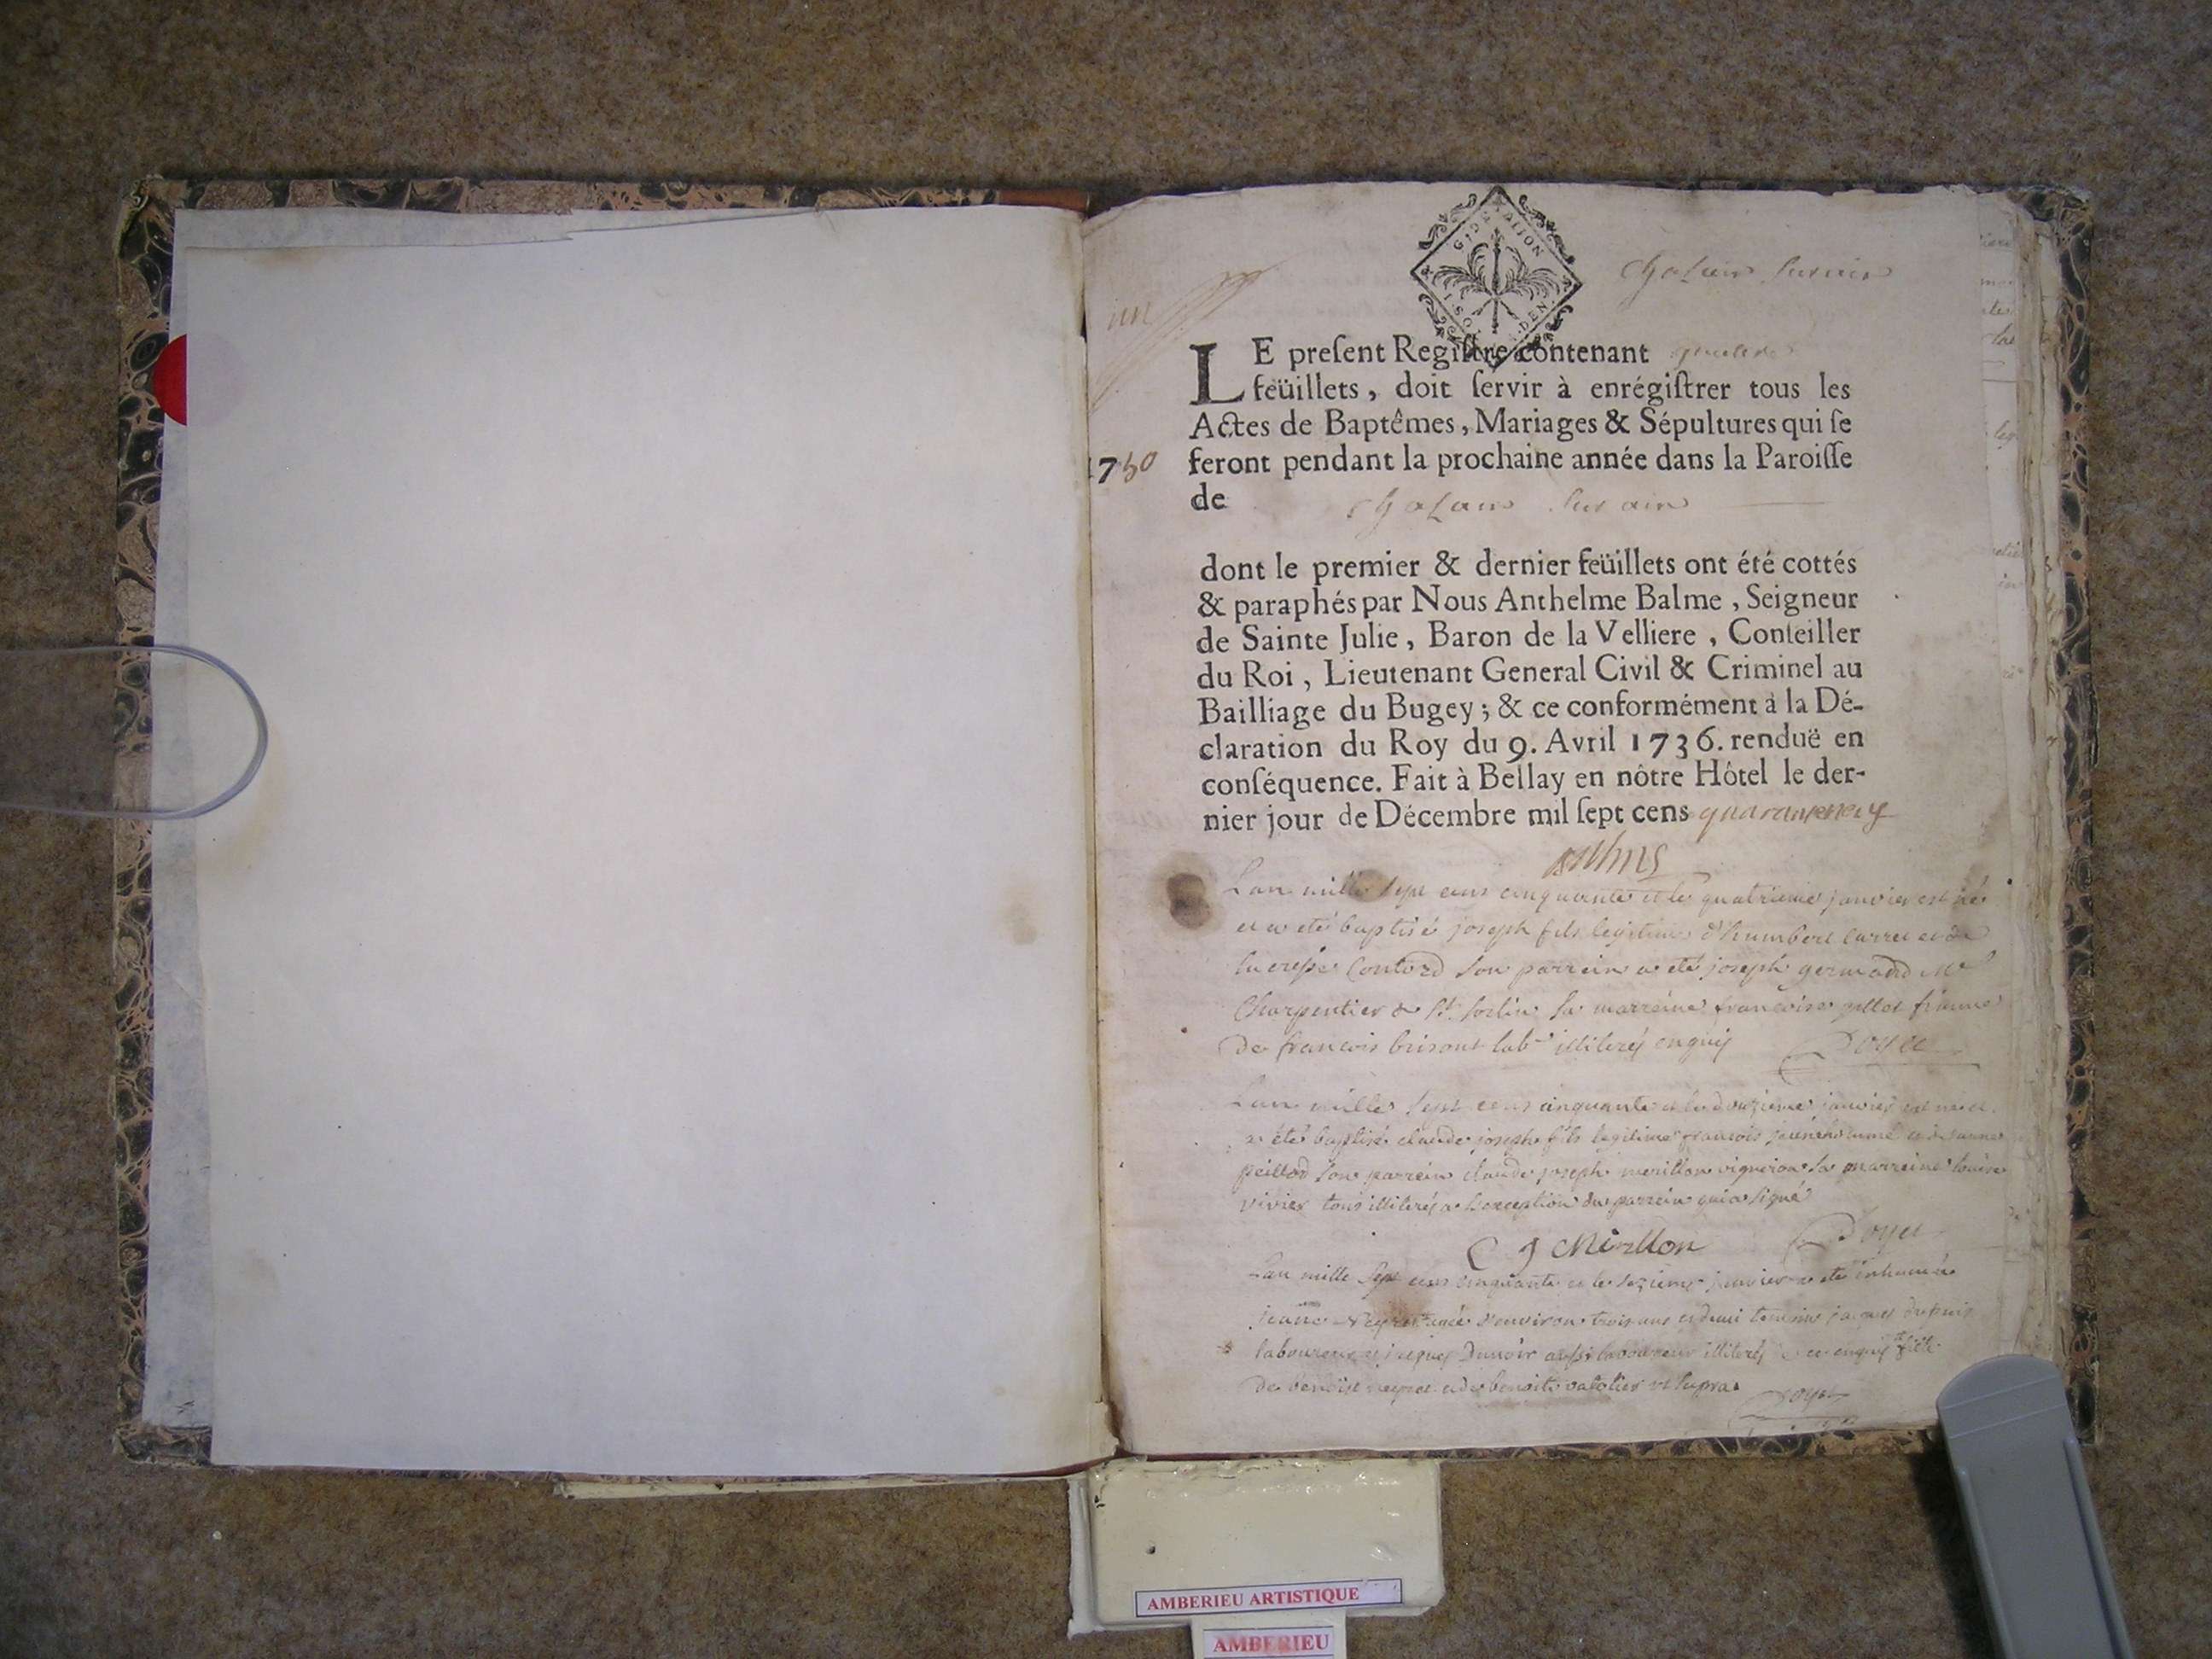 1750
LE preſent Regiſtre contenant quatre
feüillets, doit ſervir à enrégiſtrer tous les
Actes de Baptêmes, Mariages & Sépultures qui ſe
feront pendant la prochaine année dans la Paroiſſe
de
dont le premier & dernier feüillets ont été cottés
& paraphés par Nous Anthelme Balme, Seigneur
de Sainte Julie, Baron de la Velliere, Conſeiller
du Roi, Lieutenant General Civil & Criminel au
Bailliage du Bugey; & ce conformément à la Dé-
claration du Roy du 9. Avril 1736. renduë en
conſéquence. Fait à Bellay en nôtre Hôtel le der-
nier jour de Décembre mil ſept cens quaranteneuf
Lan mille sept cens cinquante et le quatrieme janvier est né
et a eté baptisé joseph fils legitime d'humbert carret et de
son parrein a eté joseph germand
Charpentier de St Sorlin sa marreine francoise femme
De francois illiterés enquis
Lan mille sept cens cinquante et le douzieme janvier est né et
a été baptisé claude joseph fils legitime francois et de jeanne
peillod son parrein claude joseph merillon vigneron sa marreine louise
vivier tous illiterés a l'exception du parrein qui a signé
C J Mirllon
Lan mille sept cens cinquante et le sezieme janvier a eté inhumée
jeanne Neyret agée d'environ trois ans et demi temoins jaques dupuis
laboureur et jaques aussi laboureur illiterés de ce enquis fille
De benoist neyret et de benoite vatelier ut supra
AMBERIEU ARTISTIQUE
AMBERIEU